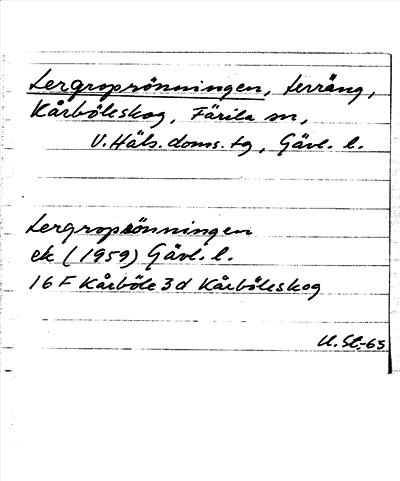 Lergropsönningen, terräng,
Kårböleskog, Färila sn,
V. Häls. doms. tg, Gävl. l.
Lergropsönningen
ek (1959) Gävl. l.
16 F Kårböle 3 d Kårböleskog
U. St.-65